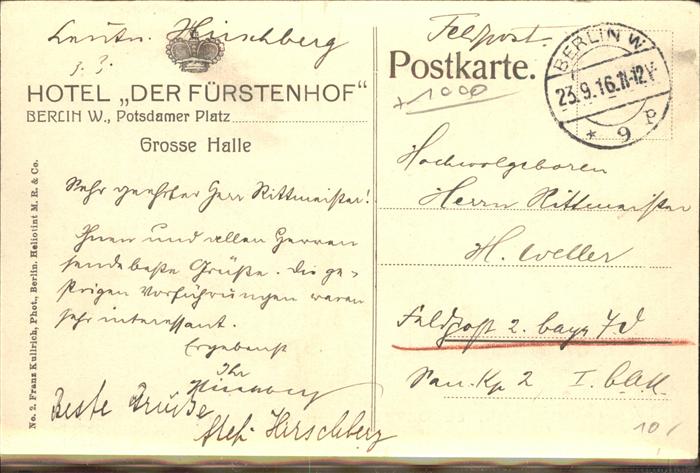 Leutn. Hirschberg
z. Z.
HOTEL „DER FÜRSTENHOF"
BERLIN W., Potsdamer Platz
Grosse Halle
Sehr geehrter Herr Rittmeister!
Ihnen und allen Herren
sende beste Grüße. Die ge-
strigen Vorführungen waren
sehr interessant.
Ergebenst
Ihr
Hirschberg
Beste Grüße
Hirschberg
No. 2. Franz Kullrich, Phot., Berlin. Heliotint M. R. & Co.
Feldpost.
Postkarte.
1000
BERLIN W.
23.9.16.11-12V.
* 9 p
Hochwolgeboren
Herrn Rittmeister
H. Weller
Feldpost 2. bayr. J D
San. Kp 2 I. b.A.K.
10